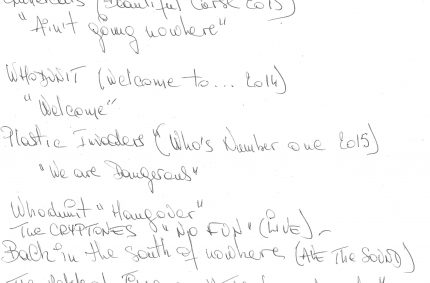 (Beautiful Curse 2015)
"Ain't going nowhere"
WHODUNIT (Welcome to... 2014)
"Welcome"
Plastic Invaders "(Who's Number one 2015)
"We are Dangerous"
Whodunit "Hangover"
THE CRYPTONES "NO FUN" (LIVE) -
Back in the south of nowhere (THE SOUND)
The